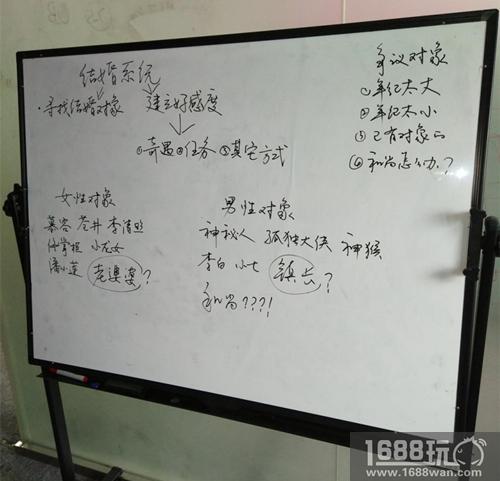 结婚系统
·寻找结婚对象 建立好感度
①奇遇②任务③其它方式
争议对象
①年纪太大
②年纪太小
③已有对象的
④和尚怎么办?
女性对象
慕容 苍井 李清照
小龙女
潘小莲 老婆婆?
男性对象
神秘人 孤独大侠 神猴
李白 小七 镇长?
和尚???!
1688玩
www.1688wan.com